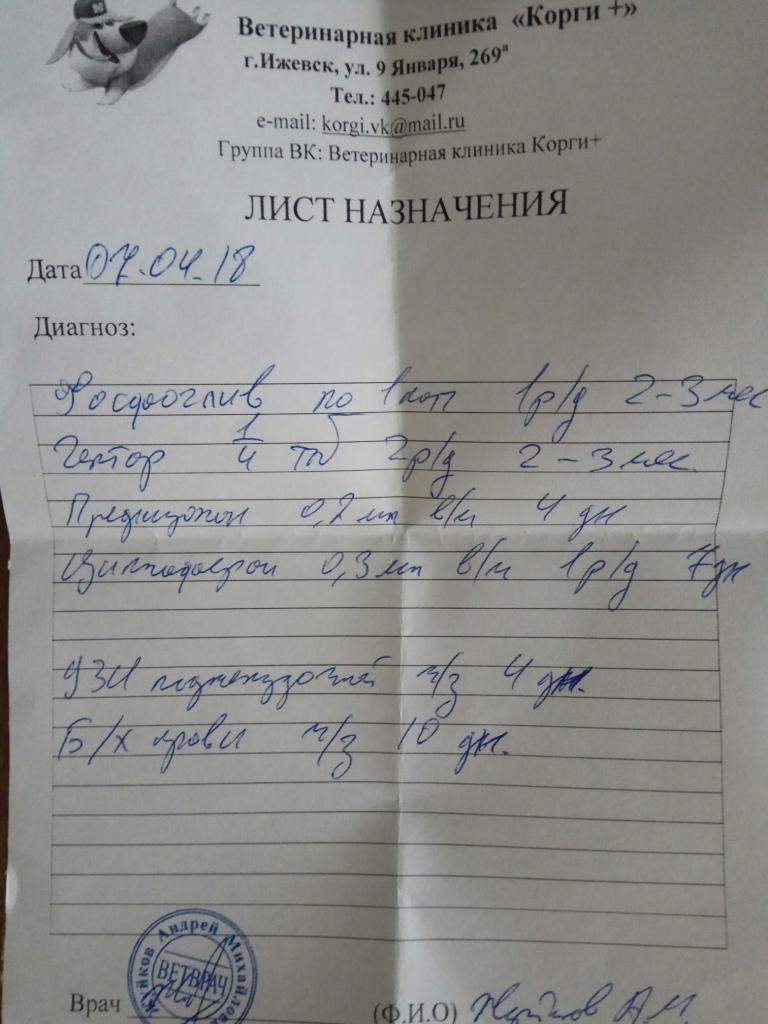 Ветеринарная клиника «Корги +»
г.Ижевск, ул. 9 Января, 269ª
Тел.: 445-047
e-mail: korgi.vk@mail.ru
Группа ВК: Ветеринарная клиника Корги+
ЛИСТ НАЗНАЧЕНИЯ
Дата 07.04.18
Диагноз:
Фосфоглив по 1 кап 1 р/д 2-3 мес
Гептор 1/4 таб 2 р/д 2-3 мес.
Преднизолон 0,2 мл в/м 4 дн
0,3 мл в/м 1 р/д 7 дн
УЗИ поджелудочной ч/з 4 дн.
Б/х крови ч/з 10 дн.
Андрей Михайлов
ВЕТВРАЧ
Врач
(Ф.И.О) А.М.